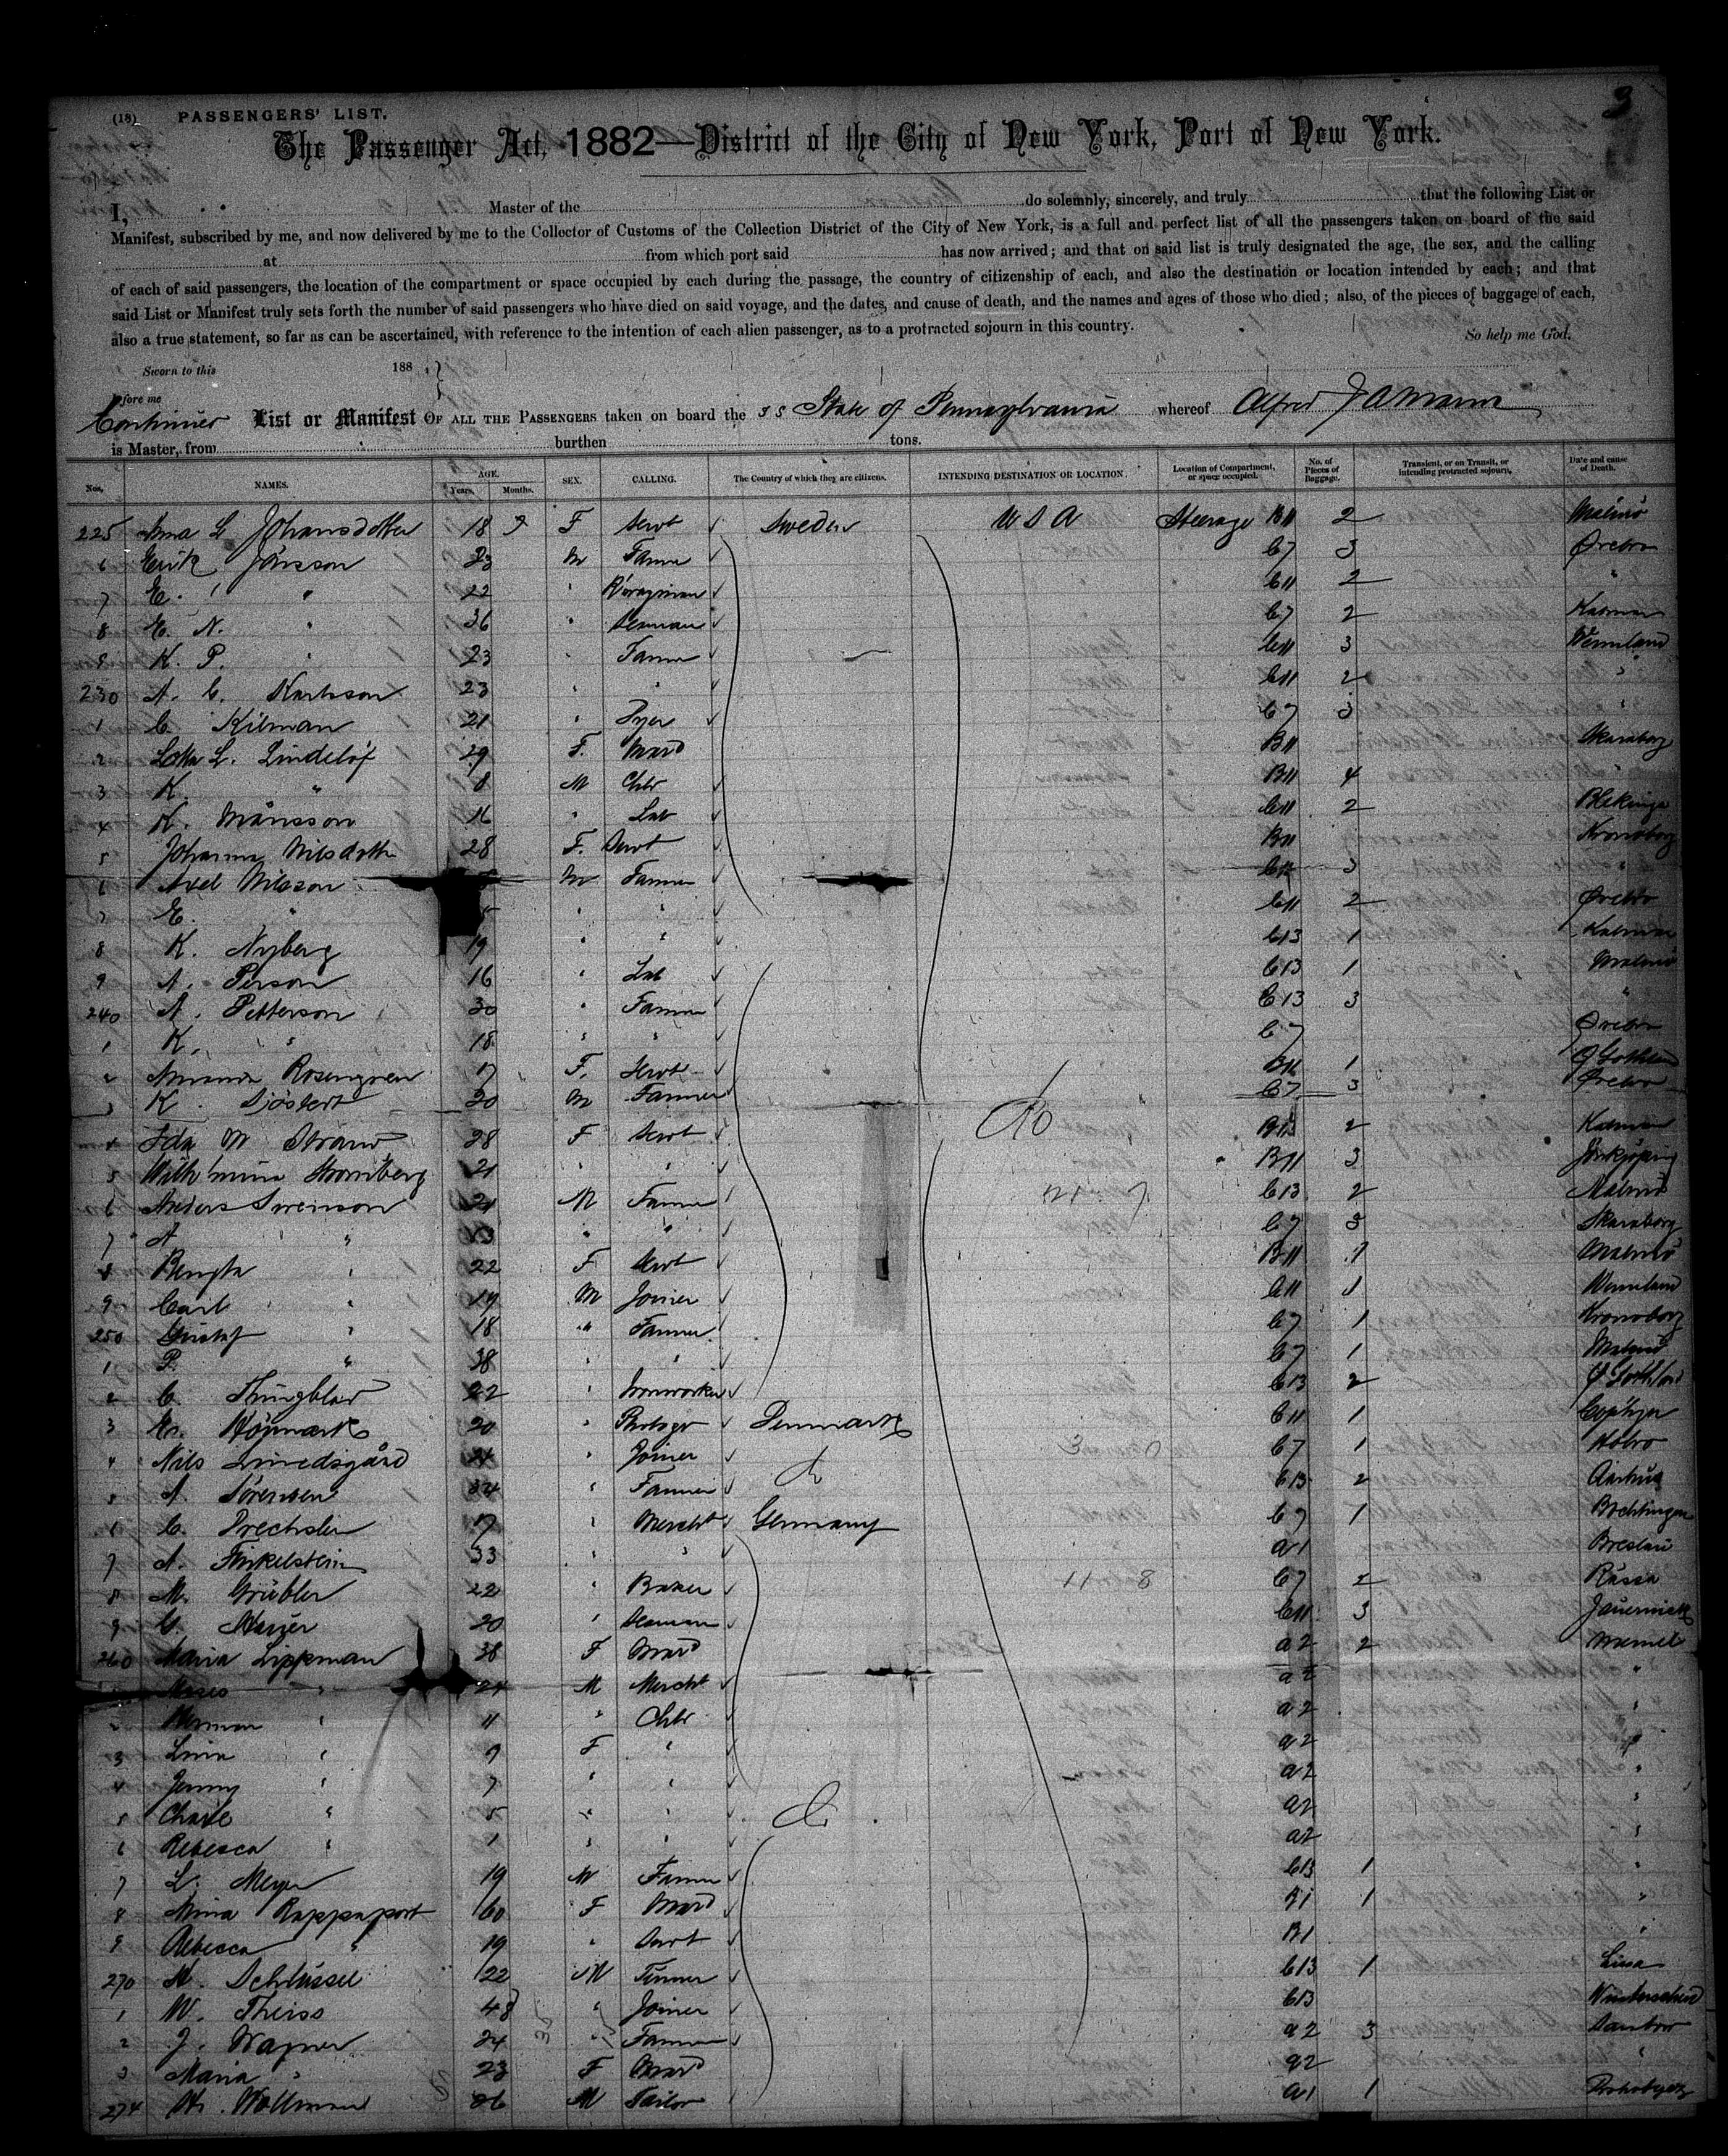 3
(18) PASSENGERS' LIST.
The Passenger Act, 1882—District of the City of New York, Port of New York.
I, Master of the do solemnly, sincerely, and truly that the following List or
Manifest, subscribed by me, and now delivered by me to the Collector of Customs of the Collection District of the City of New York, is a full and perfect list of all the passengers taken on board of the said
at from which port said has now arrived; and that on said list is truly designated the age, the sex, and the calling
of each of said passengers, the location of the compartment or space occupied by each during the passage, the country of citizenship of each, and also the destination or location intended by each; and that
said List or Manifest truly sets forth the number of said passengers who have died on said voyage, and the dates, and cause of death, and the names and ages of those who died; also, of the pieces of baggage of each,
also a true statement, so far as can be ascertained, with reference to the intention of each alien passenger, as to a protracted sojourn in this country. So help me God.
Sworn to this 188
fore me
List or Manifest OF ALL THE PASSENGERS taken on board the SS State of Pennsylvania whereof Alfred
is Master, from burthen tons.
Nos. NAMES. AGE. Years. Months. SEX. CALLING. The Country of which they are citizens. INTENDING DESTINATION OR LOCATION. Location of Compartment, or space occupied. No. of Pieces of Baggage. Transient, or on Transit, or intending protracted sojourn. Date and cause of Death.
225 Anna L Johansdotter 18 F Servt Sweden U S A Steerage B11 2 Malmö
6 Erik Jönsson 23 M Farmer C7 3 Örebro
7 E. " 22 " C11 2 "
8 E. N. " 36 " Seaman C7 2 Kalmar
9 K. P. " 23 " Farmer C11 3 Wermland
230 A. C. Karlsson 23 " " C11 2 "
1 C. Kilman 21 " Dyer C7 3 "
2 Lotta L. Lindelöf 29 F. Mard B11 Skaraborg
3 K. " 8 M Chld B11 4 "
4 K. Månsson 16 " Lab C11 2 Blekinge
5 Johanna Nilsdotter 28 F. Servt B11 Kronoborg
6 Axel Nilsson M Farmer 3 "
7 E. " " " C11 2 Örebro
8 K. Nyberg 19 " " C13 1 Kalmar
9 A. Person 16 " Lab C13 1 Malmö
240 A. Petterson 30 " Farmer C13 3 "
1 K. " 18 " " C7 Örebro
2 Amanda Rosengren 17 F. Servt B11 1 Ö Gothland
3 K. 20 M Farmer C7 3 Örebro
4 Ida M Strand 28 F Servt 2 Kalmar
5 Wilhelmina Stromberg 21 " " B11 3 Jönköping
6 Anders Swenson 21 M Farmer C13 2 Malmö
7 A " " " C7 3 Skaraborg
8 Bengta " 22 F Servt B11 1 Malmö
9 Carl " 19 M Joiner 1 Wermland
250 Gustaf " 18 " Farmer C7 1 Kronoborg
1 P. " 38 " " C7 1 Malmö
2 C. Thungblad 22 " Ironworker C13 2 Ö Gothland
3 Højmark 20 " Denmark C11 1
4 Nils " Joiner do C7 1 Hobro
5 A. Sörensen 34 " Farmer C13 2 Aarhus
6 C. Drechsler 17 " Mercht Germany C7 1
7 A. Finkelstein 33 " " A1 Breslau
8 M. Grübler 22 " Baker C7 2
9 20 " Seaman C11 3
260 Maria Lippman 38 F Mard A2 2 Memel
Moses " M Mercht A2 "
2 Herman " 11 " Chld A2 "
3 Lina " 9 F " A2 "
4 Jenny " 7 " " A2 "
5 " 5 " " do A2 "
6 Rebecca " 1 " " A2 "
7 L. Meyer 19 M Farmer C13 1 "
8 Mina Rappaport 60 F Mard B1 1 "
9 Rebecca " 19 " Servt B1 "
270 Schlüssel 22 M C13 1
1 W. Theiss 48 " Joiner C13
2 J. Wagner 24 " Farmer A2 3
3 Maria " 23 F Mard A2 "
274 Wollman 26 M Tailor A1 1